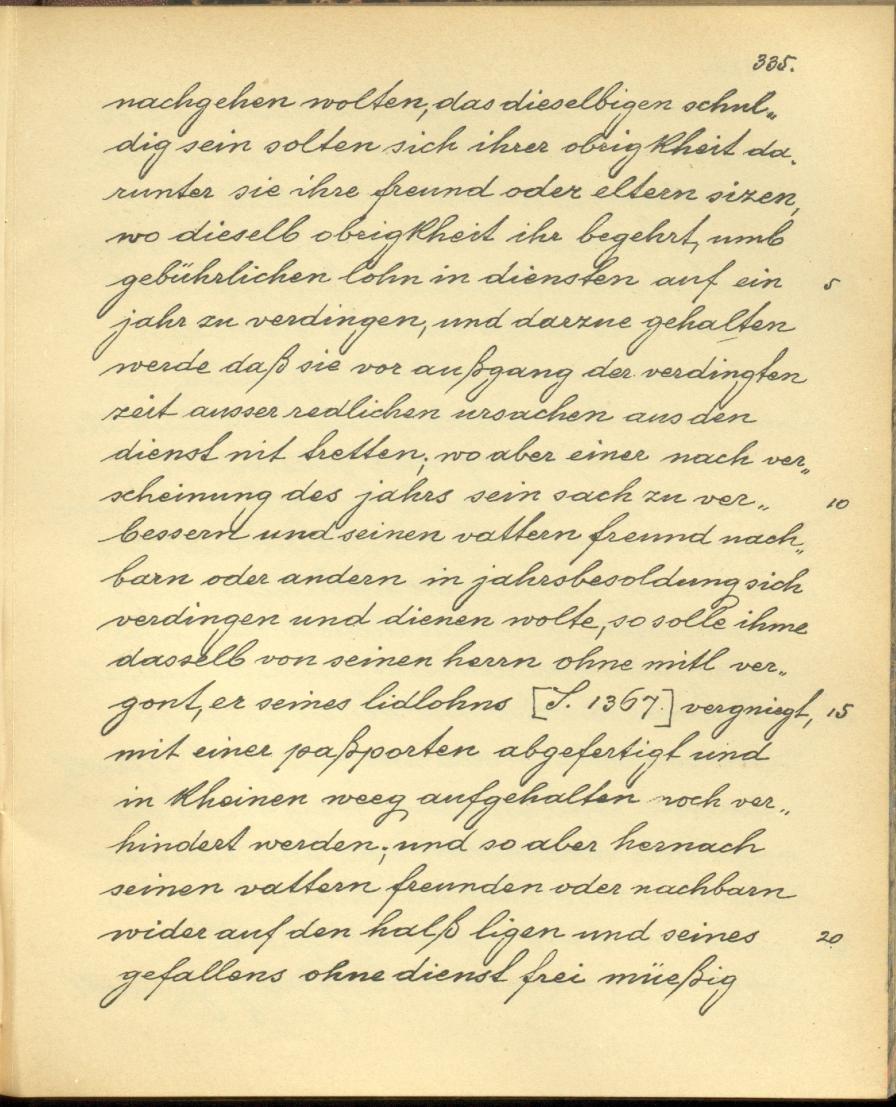 335.
nachgehen wolten, das dieselbigen schul„
dig sein solten sich ihrer obrigkheit da„
runter sie ihre freund oder eltern sizen,
wo dieselb obrigkheit ihr begehrt, umb
gebührlichen lohn in diensten auf ein 5
jahr zu verdingen, und darzue gehalten
werde daß sie vor außgang der verdingten
zeit ausser redlichen ursachen aus den
dienst nit tretten; wo aber einer nach ver„
scheinung des jahrs sein sach zu ver„ 10
bessern und seinen vattern freund nach„
barn oder andern in jahrsbesoldung sich
verdingen und dienen wolte, so solle ihme
dasselb von seinen herrn ohne mitl ver„
gont, er seines lidlohns [S. 1367.] vergniegt, 15
mit einer paßporten abgefertigt und
in kheinen weeg aufgehalten noch ver„
hindert werden; und so aber hernach
seinen vattern freunden oder nachbarn
wider auf den halß ligen und seines 20
gefallens ohne dienst frei müeßig